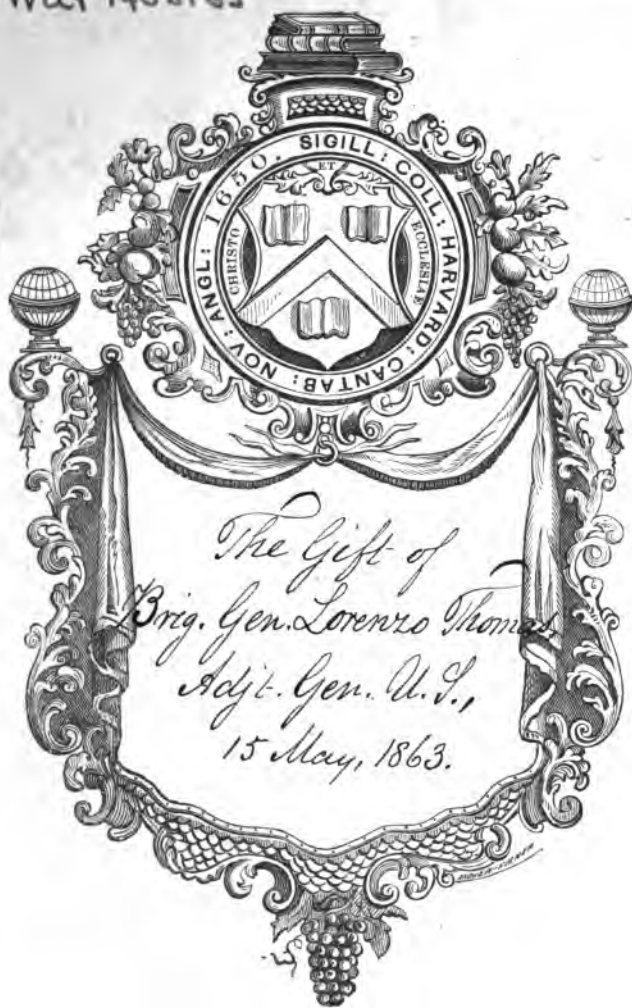 War 1405.63
SIGILL: COLL: HARVARD: CANTAB: NOV: ANGL: 1650.
CHRISTO ET ECCLESIAE
The Gift of
Brig. Gen. Lorenzo Thomas,
Adjt. Gen. U.S.,
15 May, 1863.